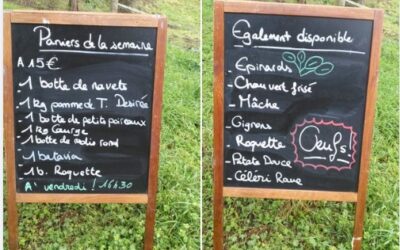 Paniers de la semaine
A 15€
1 botte de navets
1 kg pomme de T. Desirée
1 botte de petits poireaux
1 kg Courge
1 botte de radis rond
1 batavia
1 b. Roquette
A' vendredi ! 16h30
Egalement disponible
- Epinards
- Chou vert frisé
- Mâche
- Gignons
- Roquette
- Patate Douce
- Céléri Rave
Oeufs!